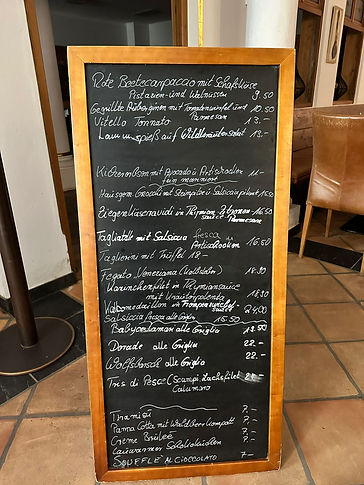 Rote Beetecarpaccio mit Schafskäse
Pistazien und Walnüssen 9.50
Gegrillte Auberginen mit Tomatenwürfel und 10.50
Parmesan
Vitello Tonnato 13.-
spieß auf Wildkräutersalat 13.-
mit Avocado u. Artischocken 11.-
fein mariniert
Hausgem. Gnocchi mit Steinpilze u. Salsiccia 16.50
Ziegenkäseravioli in Thymian Zitronen 16.50
Parmesan
Tagliatelle mit Salsiccia fresca u.
Artischocken 16.50
Taglierini mit Trüffel 18.-
Fegato Veneziana 18.90
Kaninchenfilet in Thymiansauce
mit 18.90
Kalbsmedaillon in 24.00
Salsiccia fresca alla Griglia 15.50
Babycalamari alla Griglia 19.50
Dorade alla Griglia 22.-
Wolfsbarsch alla Griglia 22.-
Tris di Pesce (Scampi Lachsfilet 22.-
Calamaro
Tiramisu 7.-
Panna Cotta mit Waldbeerkompott 7.-
Creme Brulée 7.-
Lauwarmer Schokokuchen 7.-
SOUFFLE AL CIOCCOLATO 7-